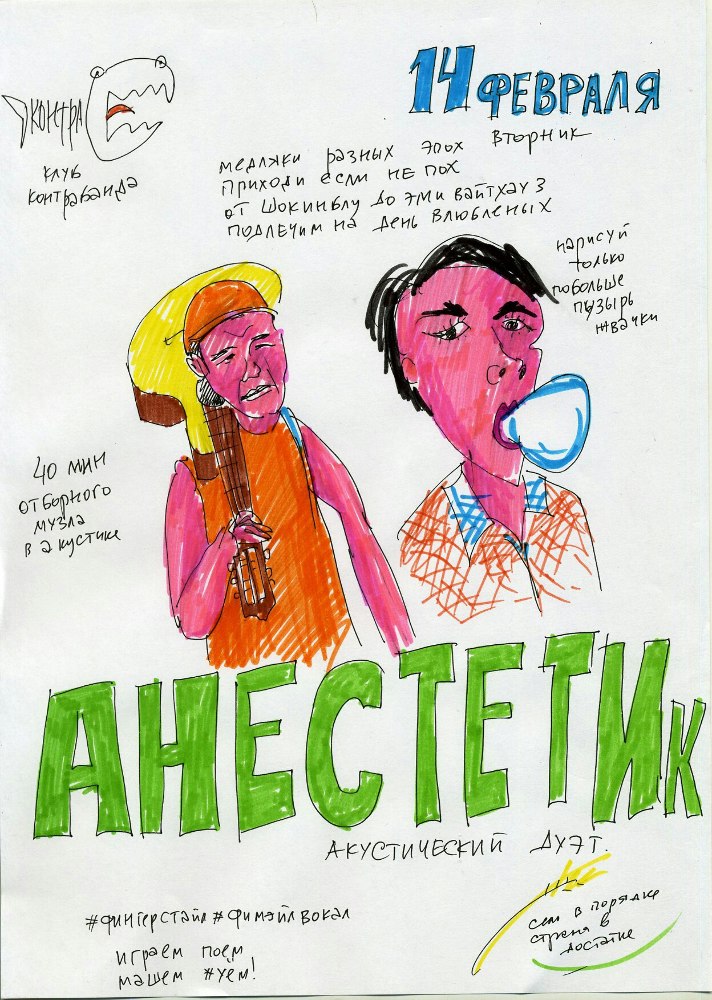 14 ФЕВРАЛЯ
ВТОРНИК
КОНТРА
клуб
контрабанда
медляки разных эпох
приходи если не пох
от шокинблу до эми вайтхауз
подлечим на день влюбленых
нарисуй
только
побольше
пузырь
жвачки
40 мин
отборного
музла
в акустике
АНЕСТЕТИК
АКУСТИЧЕСКИЙ ДУЭТ.
#фингерстайл #фимэйлвокал
играем поём
машем #уём!
сем в порядке
страна в
достатке